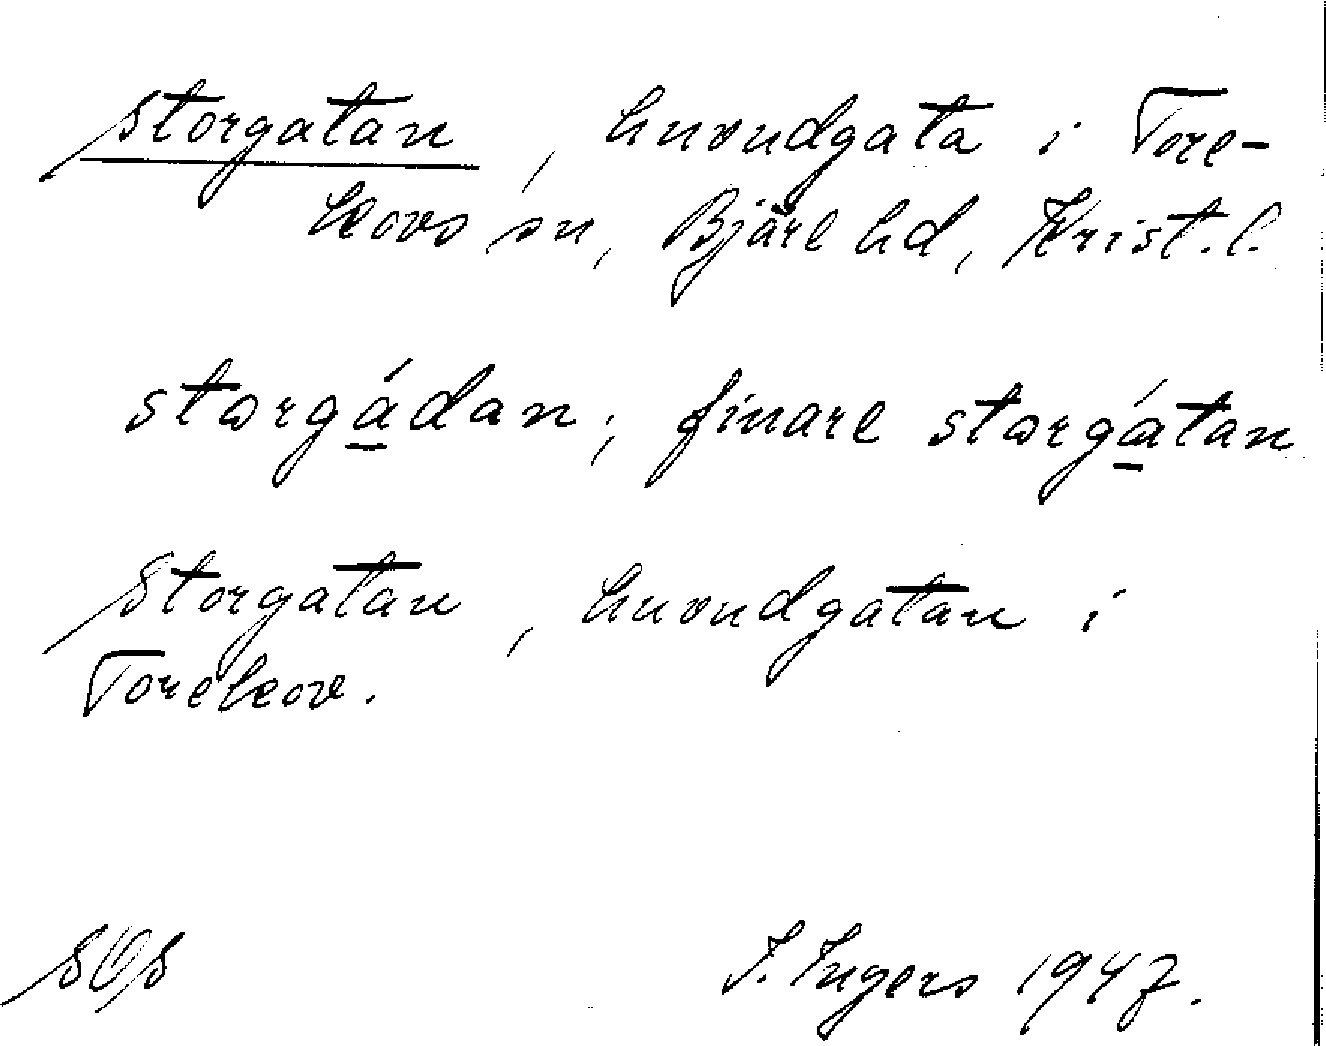 Storgatan, huvudgata i Tore-
kovs sn, Bjäre hd, Krist. l.
storgá̱dan; finare storgá̱tan
Storgatan, huvudgatan i
Torekov.
SOS I. Ingers 1947.